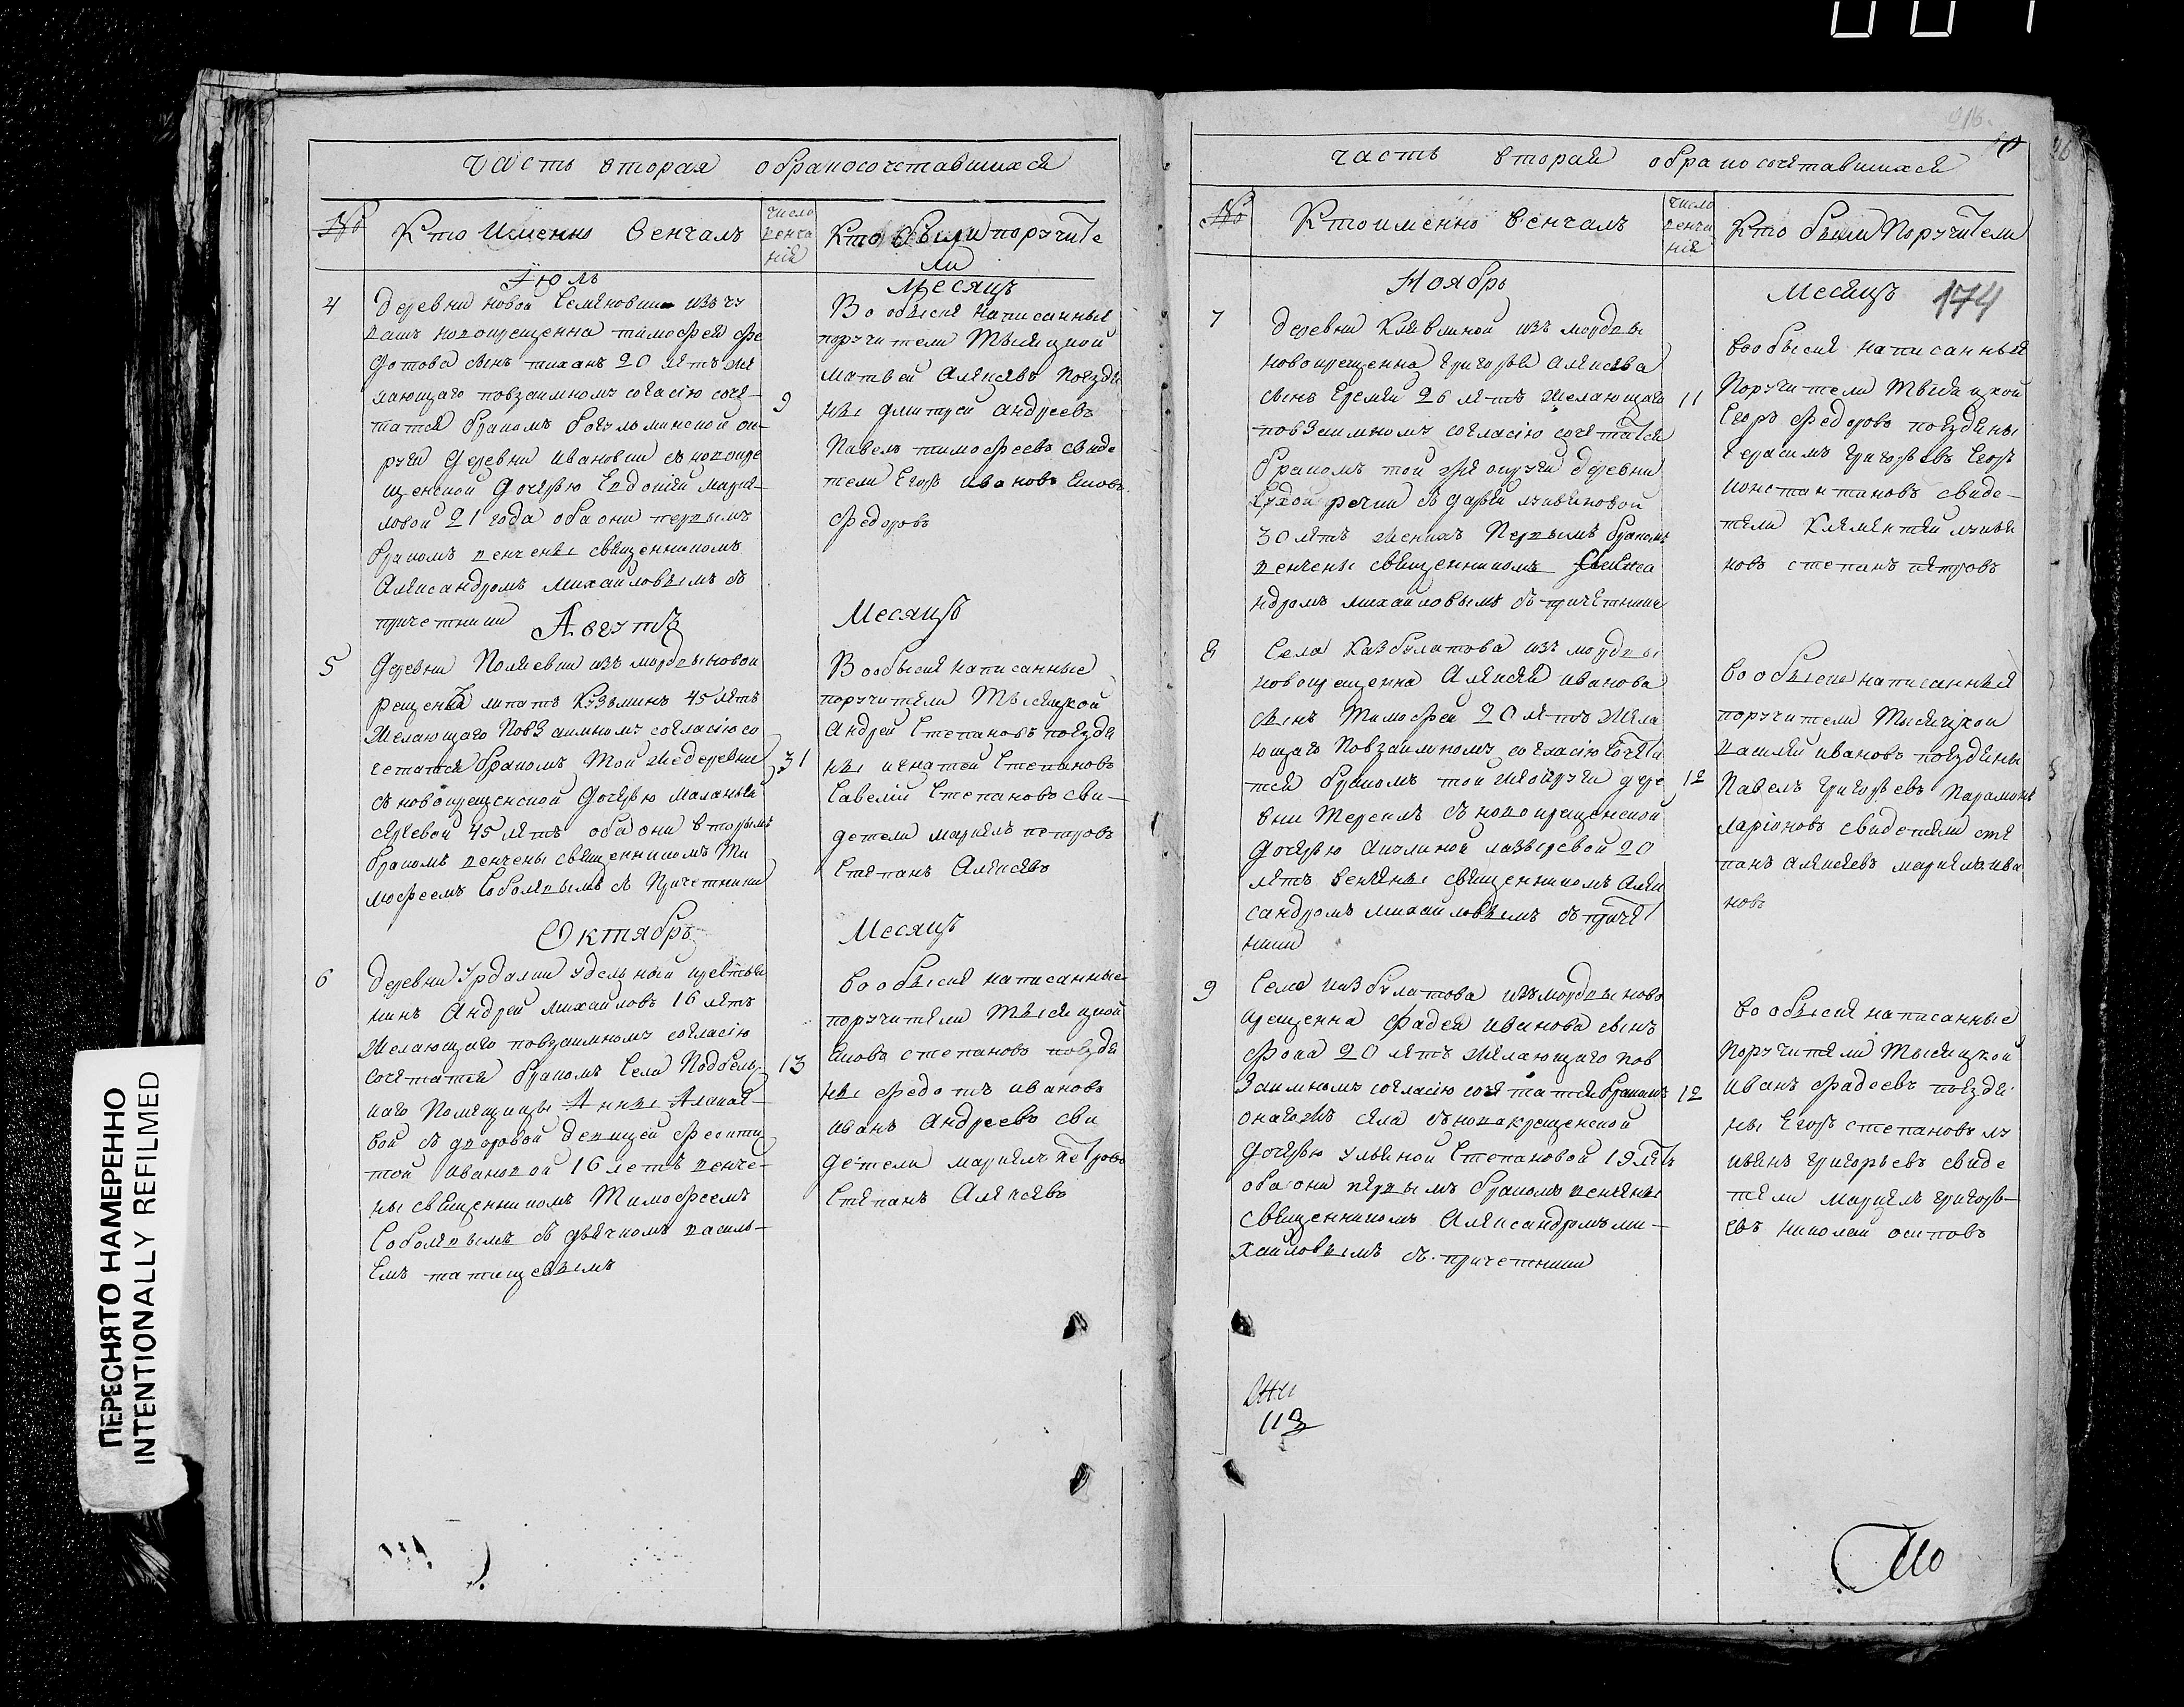 часть вторая обракосочетавшихся
№
Кто Именно Венчалъ
число венча нія
Кто были поручите
ли
Іюль
Месяцъ
4
Деревни новой Семеновки изъ чу
вашъ новокрещенна тимофея фе
дотова сынъ тиханъ 20 летъ же
лающаго повзаимному согласію соче–
татся бракомъ богульминской ок–
руги деревни ивановки съ новокре
щенской дочерью Евдокией марке–
ловой 21 года оба они первымъ
бракомъ венчены священникомъ
Александромъ михаиловымъ съ
причетники
9
Во обыске написанныя
поручители Тысяцкой
матвей Алексевъ поезде
ны дмитрей андреевъ
Павелъ тимофеевъ свиде
тели Егоръ ивановъ
федоровъ
Августъ
Месяцъ
5
Деревни Поляевки изъ мордвы новок
рещенъ ипатъ Кузьминъ 45 летъ
Желающаго Повзаимному согласію со
четатся бракомъ той же деревни
съ новокрещенской дочерью маланьей
45 летъ оба они вторымъ
бракомъ венчены священникомъ Ти
мофеемъ Соболевымъ съ Причетники
31
Во обыске написанные
поручители Тысяцкой
Андрей Степановъ поезде
ны игнатей Степановъ
Савелій Степановъ сви–
детели маркелъ петровъ
Степанъ Алексевъ
Октябрь
Месяцъ
6
деревни Урдалии удельный крестья
нинъ Андрей михаиловъ 16 летъ
Желающаго повзаимному согласію
сочетатся бракомъ Села Подбель
каго Помещицы Анны
вой съ дворовой девицей феокти
той ивановой 16 летъ венче–
ны священникомъ Тимофеемъ
Соболевымъ съ дьячкомъ василь–
емъ татищевымъ
13
во обыске написанные
поручители Тысяцкой
Яковъ степановъ поезде
ны федотъ ивановъ
иванъ Андреевъ сви
детели маркелъ Петровъ
Степанъ Алексевъ
часть вторая обракосочетавшихся
№
Кто именно венчалъ
число венча нія
Кто были Поручители
Ноябрь
Месяцъ 174
7
деревни Клявлиной изъ мордвы
новокрещенна григорья алексева
сынъ Еремей 26 летъ желающаго
повзаимному согласію сочетатся
бракомъ той же округи деревни
Сухой речки съ дарьей лукьяновой
30 летъ женихъ Первымъ бракомъ
венчены священникомъ Алекса
ндромъ михаиловымъ съ причетники
11
вообыске написанныя
Поручители Тысяцкой
Егоръ федоровъ поездены
герасимъ григорьевъ Егоръ
константиновъ свиде–
тели Клементей лукья
новъ степанъ петровъ
8
Села Казбулатова изъ мордвы
новокрещенна Алексея иванова
сынъ Тимофей 20 летъ Жела
ющаго Повзаимному согласію Сочета
тся бракомъ той же округи дере
вни съ новокрещенской
дочерью акулиной лазыревой 20
летъ венчены священникомъ Алек
сандромъ михаиловымъ съ причет
ники
12
во обыске написанныя
поручители Тысяцкой
василей ивановъ поездены
Павелъ григорьевъ Парамонъ
ларіоновъ свидетели сте
панъ алексеевъ маркелъ ива
новъ
9
Села казбулатова изъ мордвы ново
крещенна фадея иванова сынъ
фока 20 летъ желающаго пов
заимному согласію сочетатся бракомъ
онагожъ села съ новокрещенской
дочерью ульяной Степановой 19 летъ
оба они первымъ бракомъ венчены
священникомъ Александромъ ми–
хаиловымъ съ причетники
12
во обыске написанные
поручители Тысяцкой
иванъ фадеевъ поезде
ны Егоръ степановъ лу
кьянъ григорьевъ свиде
тели маркелъ григорь–
евъ николай осиповъ
ПЕРЕСНЯТО НАМЕРЕННО
INTENTIONALLY REFILMED